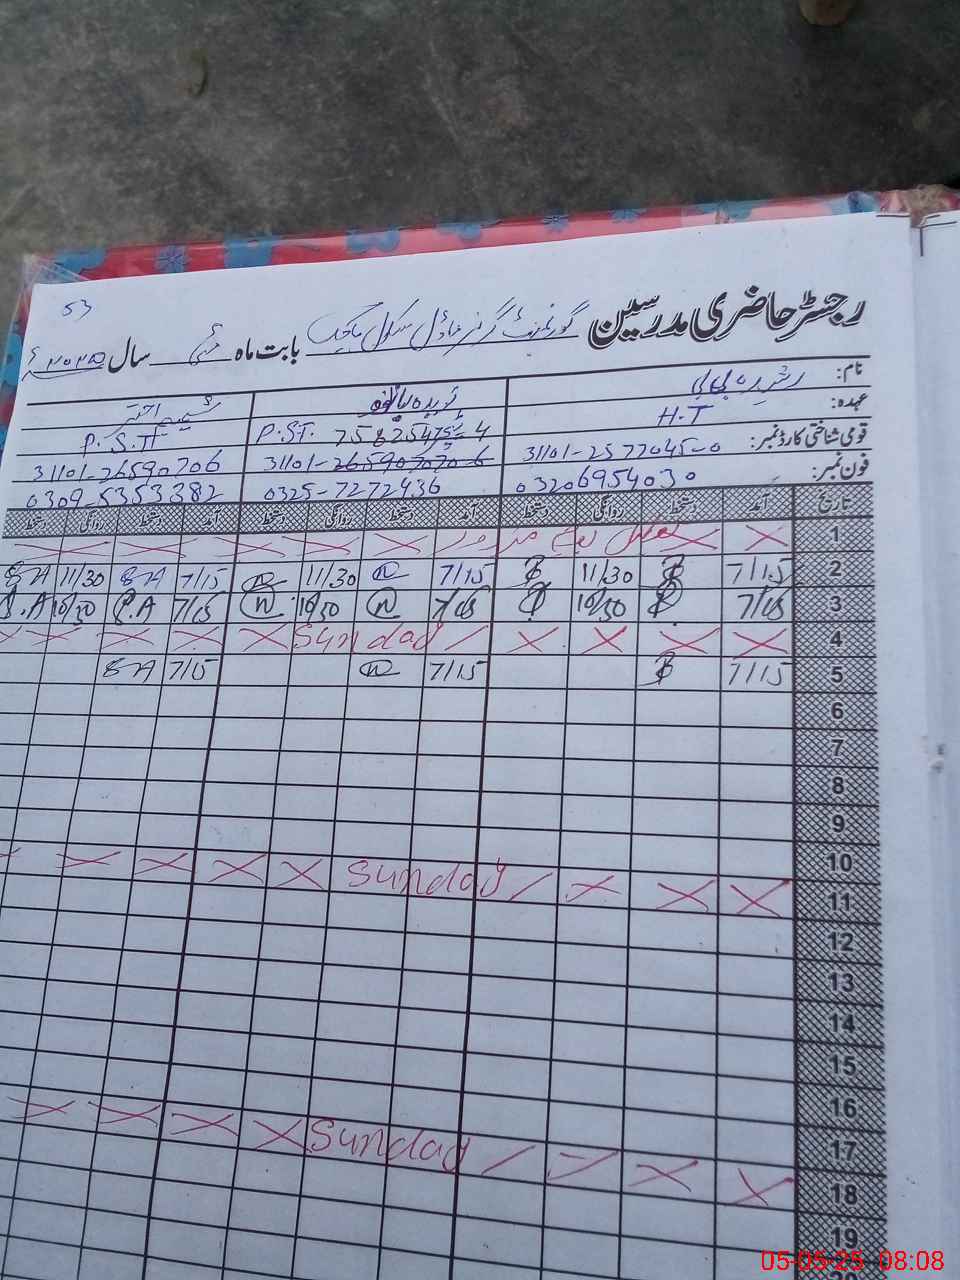 53
رجسٹر حاضری مدرسین گورنمنٹ گرلز ماڈل سکول بابت ماہ مئی سال ۲۰۲۵ء
نام: رشیدہ بی بی شمیم اختر
عہدہ: H.T P.S.T. P.S.T
قومی شناختی کارڈ نمبر: 31101-2577045-0 31101- 31101-26590706
فون نمبر: 03206954030 0325-7272436 0309-5353382
تاریخ آمد دستخط روانگی دستخط آمد دستخط روانگی دستخط آمد دستخط روانگی دستخط
1 X X یوم X X X X X X
2 7/15 11/30 7/15 n 11/30 n 7/15 SA 11/30 SA
3 7/15 10/30 7/15 n 10/30 n 7/15 S.A 10/30 S.A
4 X X X X / Sunday X X X X X
5 7/15 7/15 n 7/15 SA
6
7
8
9
10
11 X X X / Sunday X X X X X
12
13
14
15
16
17
18 X X / Sunday X X X X
19
05-05-25 08:08